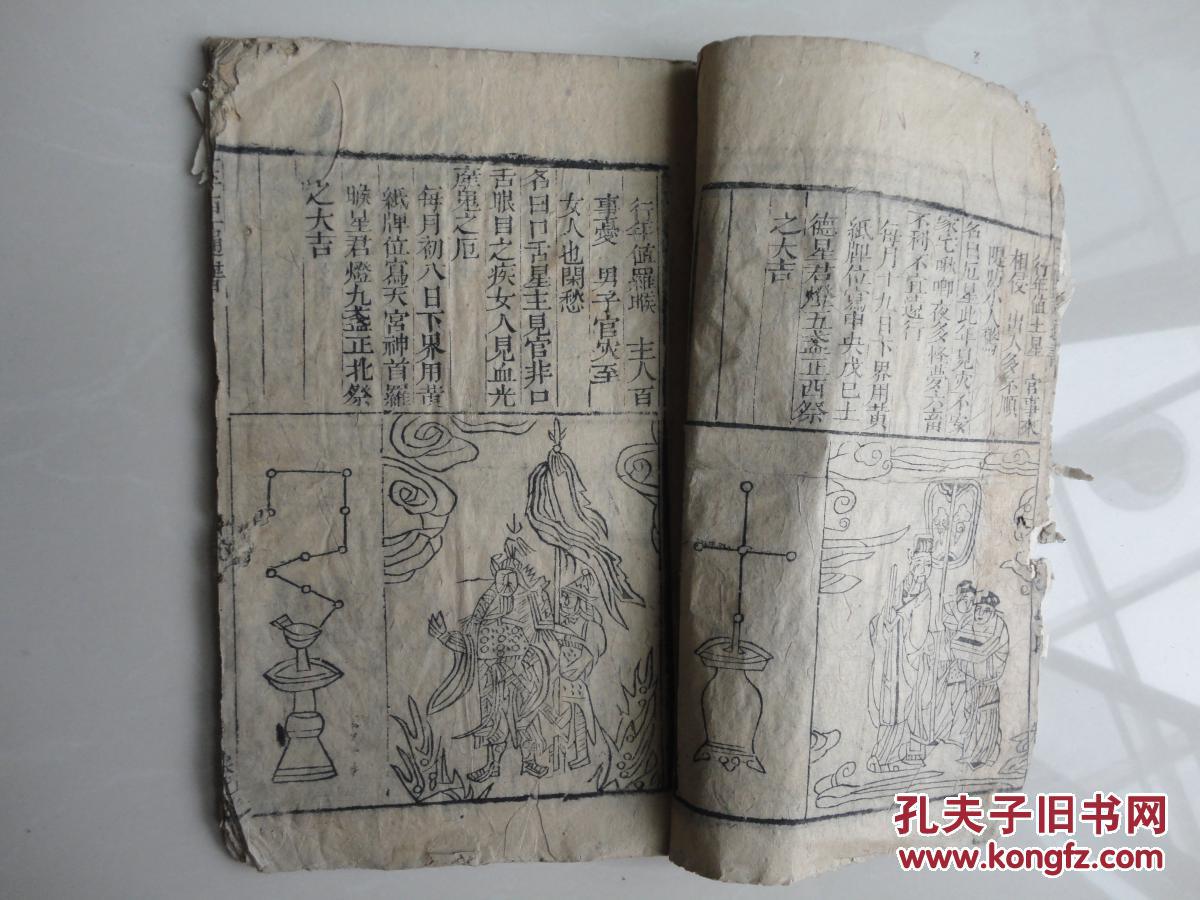 行年值土星 官事來
相侵 出人多不順
隄防小人
名曰厄星此年見灾不安
家宅啾唧夜多條夢六畜
不利不宜遠行
每月十九日下界用黄
紙牌位寫中央戊巳土
德星君燈五盞正西祭
之大吉
行年值羅㬋 主人百
事憂 男子官灾至
女人也閑愁
名曰口舌星主見官非口
舌眼目之疾女人見血光
産鬼之厄
每月初八日下界用黄
紙牌位寫天宮神首羅
㬋星君燈九盞正北祭
之大吉
孔夫子旧书网
www.kongfz.com